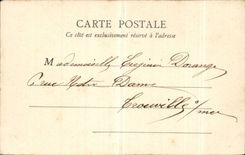 CARTE POSTALE
Ce côté est exclusivement réservé à l'adresse
Mademoiselle Eugénie Dorange
6 rue Notre Dame
Trouville s/mer